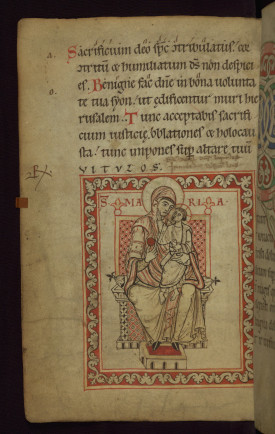 a.
Sacrificium deo sp̄c ꝯtribulatus. cor
ꝯtritū ⁊ humiliatum dš non despici
o.
es. Benigne fac dn̄e in bona volunta
te tua syon. ut edificentur muri hie
rusalem. Tunc acceptabis sacrifi
cium iusticię. oblationes ⁊ holocau
sta. tunc imponent sup̄ altare tuū
VITVLOS.
S MARIA